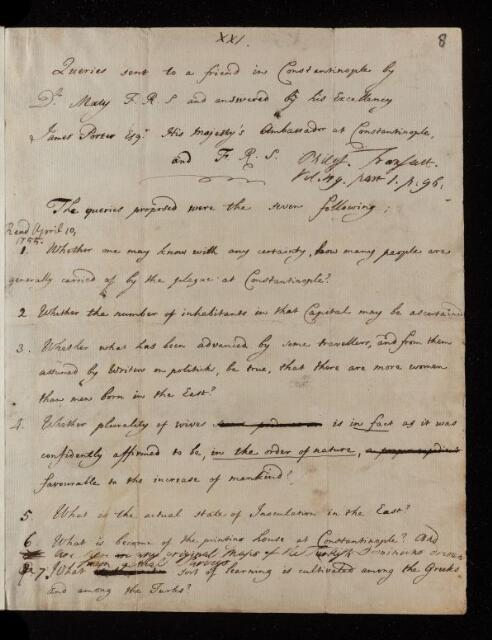 XXI.
8
Queries sent to a friend in Constantinople by
Dr. Maty F. R. S and answered by his Excellency
James Porter Esqr. His Majesty's Ambassador at Constantinople,
and F. R. S. Philos. Transact.
Vol. 49. part 1. p. 96.
The queries proposed were the seven following;
Read April 10,
1755.
1. Whether one may know with any certainty, how many people are
generally carried of by the plague at Constantinople?
2 Whether the number of inhabitants in that Capital may be ascertained
3. Whether what has been advanced by some travellers, and from them
assumed by Writers on politicks, be true, that there are more women
than men born in the East?
4. Whether plurality of wives is in fact as it was
confidently affirmed to be, in the order of nature,
favourable to the increase of mankind?
5 What is the actual state of Inoculation in the East?
6. What is become of the printing house at Constantinople? And
are there any original Maps of the Turkish Dominions drawn
from actual Surveys
7. What sort of learning is cultivated among the Greeks
and among the Turks?